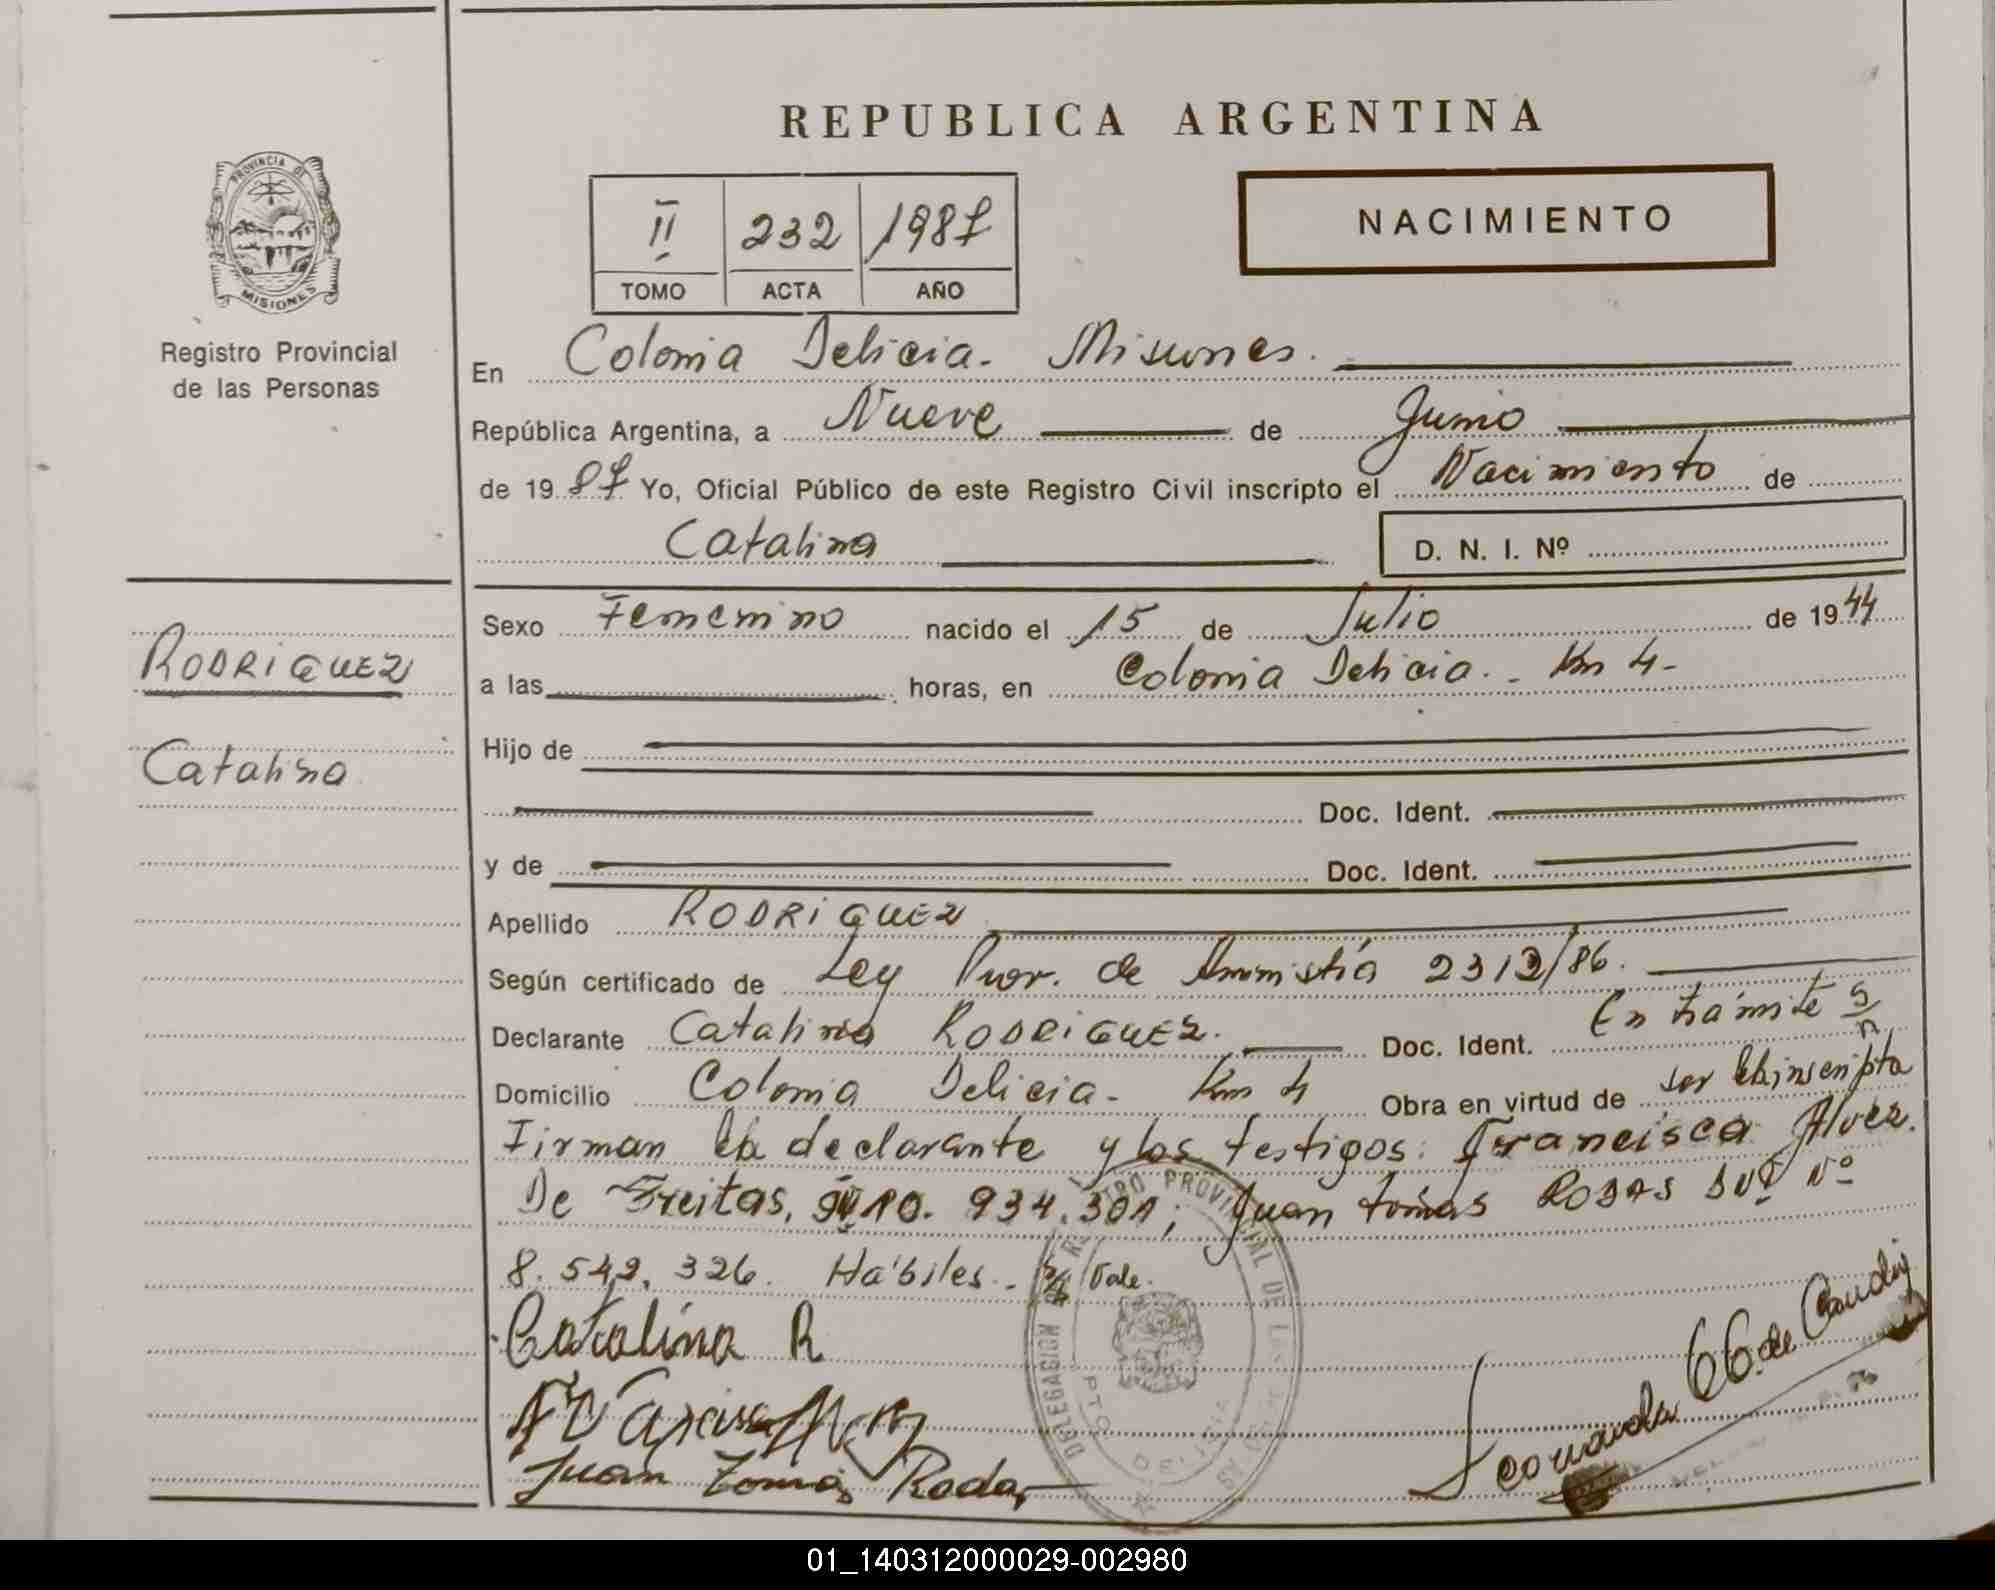 REPUBLICA ARGENTINA
PROVINCIA DE
MISIONES
Registro Provincial
de las Personas
II 232 1987
TOMO ACTA AÑO
NACIMIENTO
En Colonia Delicia - Misiones.
República Argentina, a Nueve de Junio
de 1987 Yo, Oficial Público de este Registro Civil inscripto el Nacimiento de
Catalina D. N. I. Nº
Sexo Femenino nacido el 15 de Julio de 1944
RODRIGUEZ
a las horas, en Colonia Delicia. - Km 4-
Catalina
Hijo de
Doc. Ident.
y de Doc. Ident.
Apellido RODRIGUEZ
Según certificado de Ley Prov. de Amnistía 2312/86.
Declarante Catalina RODRIGUEZ. Doc. Ident. En trámite s/n
Domicilio Colonia Delicia - Km 4 Obra en virtud de ser la inscripta
Firman la declarante y los testigos: Francisca Alvez.
De Freitas, 934.301; Juan tomas RODAS Nº
8.542.326. Hábiles.- Vale.
Catalina R
Juan Tomas Rodas
DELEGACION REGISTRO PROVINCIAL DE LAS PERSONAS
PTO. DELICIA
01_140312000029-002980